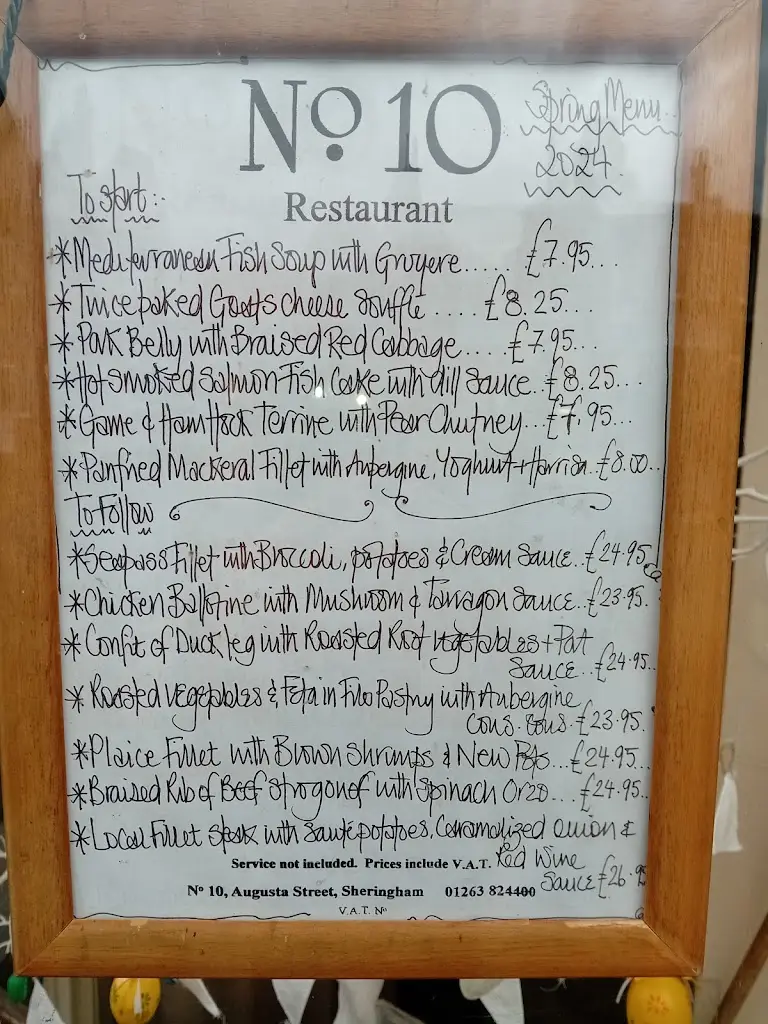 No 10
Spring Menu
2024.
Restaurant
To start:-
*Mediterranean Fish Soup with Gruyere..... £7.95...
*Twice baked Goats cheese Soufflé .... £8.25...
*Pork Belly with Braised Red Cabbage.... £7.95...
*Hot smoked Salmon Fish Cake with dill Sauce. £8.25...
*Game & Ham Hock Terrine with Pear Chutney... £7.95...
*Panfried Mackeral Fillet with Aubergine, Yoghurt + Harrisa. £8.00..
To Follow
*Seabass Fillet with Broccoli, potatoes & Cream Sauce.. £24.95.
*Chicken Ballotine with Mushroom & Tarragon Sauce.. £23.95.
*Confit of Duck leg with Roasted Root vegetables + Port
Sauce.. £24.95..
*Roasted vegetables & Feta in Filo Pastry with Aubergine
cous. cous. £23.95.
*Plaice Fillet with Brown Shrimps & New Pots... £24.95...
*Braised Rib of Beef Strogonof with Spinach Orzo.... £24.95..
*Local Fillet steak with Sauté potatoes, Caramalized onion &
Red Wine
Sauce £26.95
Service not included. Prices include V.A.T.
No 10, Augusta Street, Sheringham 01263 824400
V.A.T. No